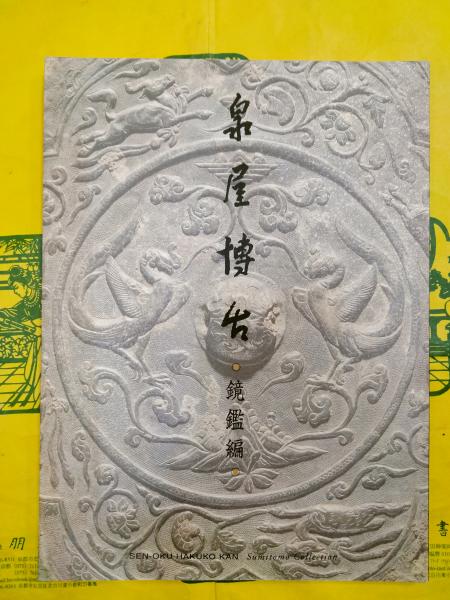 泉屋博古
鏡鑑編
SEN-OKU HAKUKO KAN Sumitomo Collection
朋
書